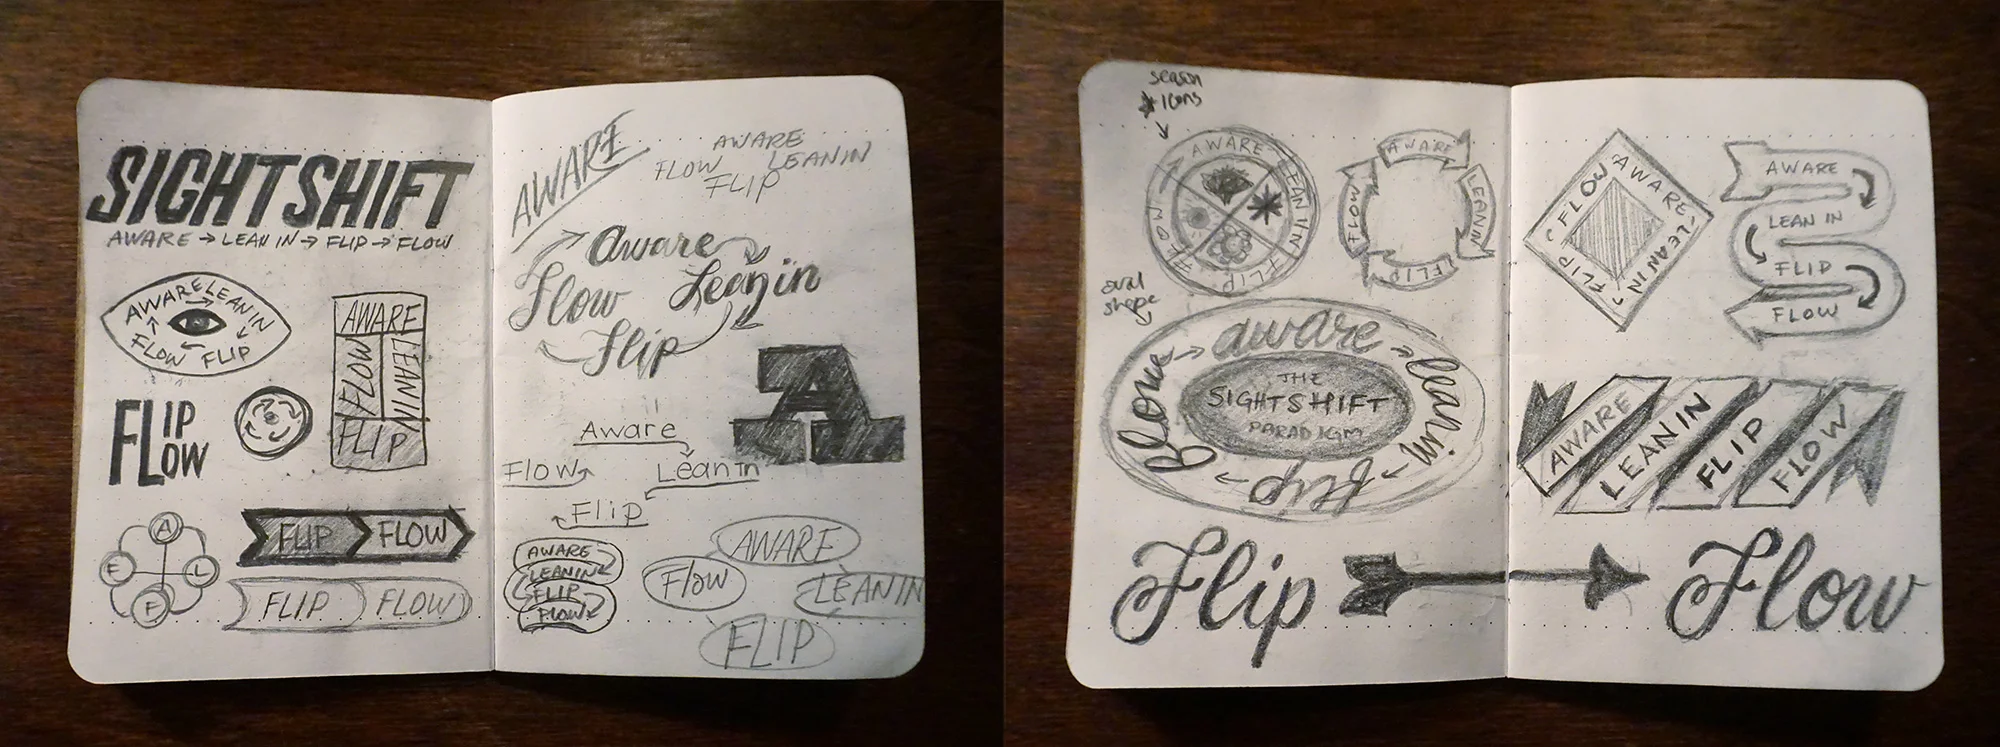 SIGHTSHIFT
AWARE → LEAN IN → FLIP → FLOW
AWARE LEAN IN
FLOW FLIP
AWARE
FLOW LEAN IN
FLIP
FLIP
FLOW
FLIP FLOW
A
F L
F
FLIP FLOW
AWARE
AWARE
FLOW LEAN IN
FLIP
aware
Flow Lean in
Flip
A
Aware
Flow Lean In
Flip
AWARE
LEAN IN
FLIP
FLOW
AWARE
Flow LEAN IN
FLIP
season
icons
AWARE
LEAN IN
FLIP
FLOW
AWARE
LEAN IN
FLIP
FLOW
oval
shape
aware
lean in
flip
flow
THE
SIGHTSHIFT
PARADIGM
FLOW AWARE
FLIP LEAN IN
AWARE
LEAN IN
FLIP
FLOW
AWARE LEAN IN FLIP FLOW
Flip Flow